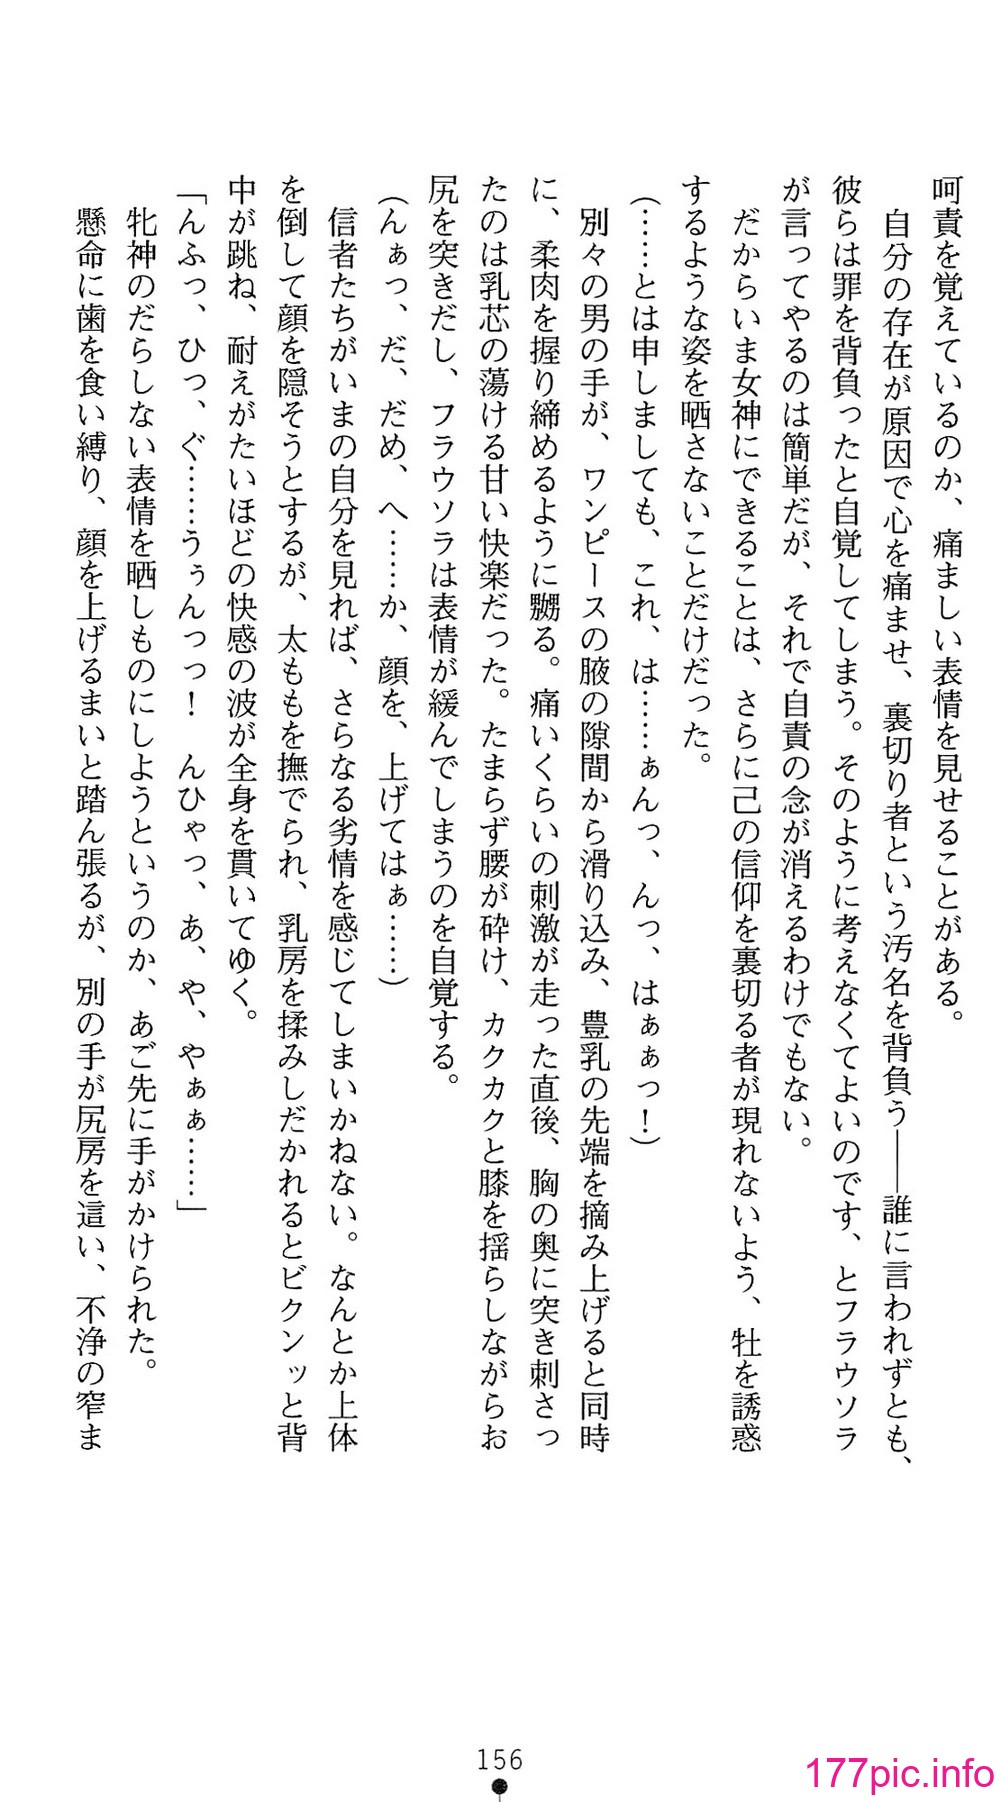 呵責を覚えているのか、痛ましい表情を見せることがある。
自分の存在が原因で心を痛ませ、裏切り者という汚名を背負う――誰に言われずとも、
彼らは罪を背負ったと自覚してしまう。そのように考えなくてよいのです、とフラウソラ
が言ってやるのは簡単だが、それで自責の念が消えるわけでもない。
だからいま女神にできることは、さらに己の信仰を裏切る者が現れないよう、牡を誘惑
するような姿を晒さないことだけだった。
(……とは申しましても、これ、は……ぁんっ、んっ、はぁぁっ!)
別々の男の手が、ワンピースの腋の隙間から滑り込み、豊乳の先端を摘み上げると同時
に、柔肉を握り締めるように嬲る。痛いくらいの刺激が走った直後、胸の奥に突き刺さっ
たのは乳芯の蕩ける甘い快楽だった。たまらず腰が砕け、カクカクと膝を揺らしながらお
尻を突きだし、フラウソラは表情が緩んでしまうのを自覚する。
(んぁっ、だ、だめ、へ……か、顔を、上げてはぁ……)
信者たちがいまの自分を見れば、さらなる劣情を感じてしまいかねない。なんとか上体
を倒して顔を隠そうとするが、太ももを撫でられ、乳房を揉みしだかれるとビクンッと背
中が跳ね、耐えがたいほどの快感の波が全身を貫いてゆく。
「んふっ、ひっ、ぐ……うぅんっっ! んひゃっ、あ、や、やぁぁ……」
牝神のだらしない表情を晒しものにしようというのか、あご先に手がかけられた。
懸命に歯を食い縛り、顔を上げるまいと踏ん張るが、別の手が尻房を這い、不浄の窄ま
156
177pic.info